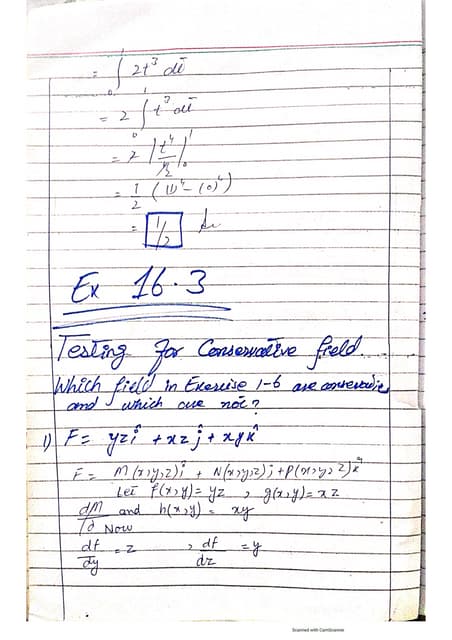 = ∫₀¹ 2t³ dt
= 2 ∫₀¹ t³ dt
= 2 |t⁴/4|₀¹
= 1/2 ((1)⁴ - (0)⁴)
= 1/2
Ex 16.3
Testing for Conservative field.
Which field in Exercise 1-6 are conservative
and which are not?
1) F = yzî + xzĵ + xyk̂
F = M(x,y,z)î + N(x,y,z)ĵ + P(x,y,z)k̂
Let f(x,y) = yz , g(x,y) = xz
dM and h(x,y) = xy
Now
df/dy = z , df/dz = y
Scanned with CamScanner